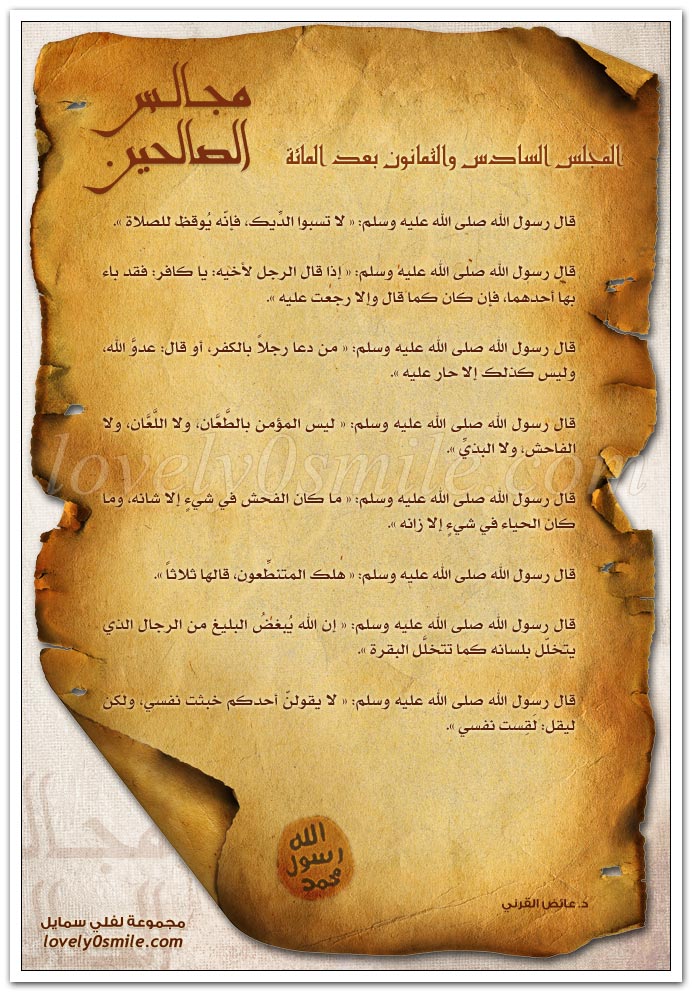 مجالس
الصالحين
المجلس السادس والثمانون بعد المائة
قال رسول الله صلى الله عليه وسلم: « لا تسبوا الدِّيك، فإنّه يُوقظ للصلاة ».
قال رسول الله صلى الله عليه وسلم: « إذا قال الرجل لأخيه: يا كافر: فقد باء
بها أحدهما، فإن كان كما قال وإلا رجعت عليه ».
قال رسول الله صلى الله عليه وسلم: « من دعا رجلاً بالكفر، أو قال: عدوَّ الله،
وليس كذلك إلا حار عليه ».
قال رسول الله صلى الله عليه وسلم: « ليس المؤمن بالطَّعَّان، ولا اللَّعَّان، ولا
الفاحش، ولا البذيِّ ».
قال رسول الله صلى الله عليه وسلم: « ما كان الفحش في شيءٍ إلا شانه، وما
كان الحياء في شيءٍ إلا زانه ».
قال رسول الله صلى الله عليه وسلم: « هلك المتنطِّعون، قالها ثلاثاً ».
قال رسول الله صلى الله عليه وسلم: « إن الله يُبغضُ البليغ من الرجال الذي
يتخلل بلسانه كما تتخلَّل البقرة ».
قال رسول الله صلى الله عليه وسلم: « لا يقولنّ أحدكم خبثت نفسي، ولكن
ليقل: لَقِست نفسي ».
الله
رسول
محمد
د. عائض القرني
مجموعة لفلي سمايل
lovely0smile.com
lovely0smile.com